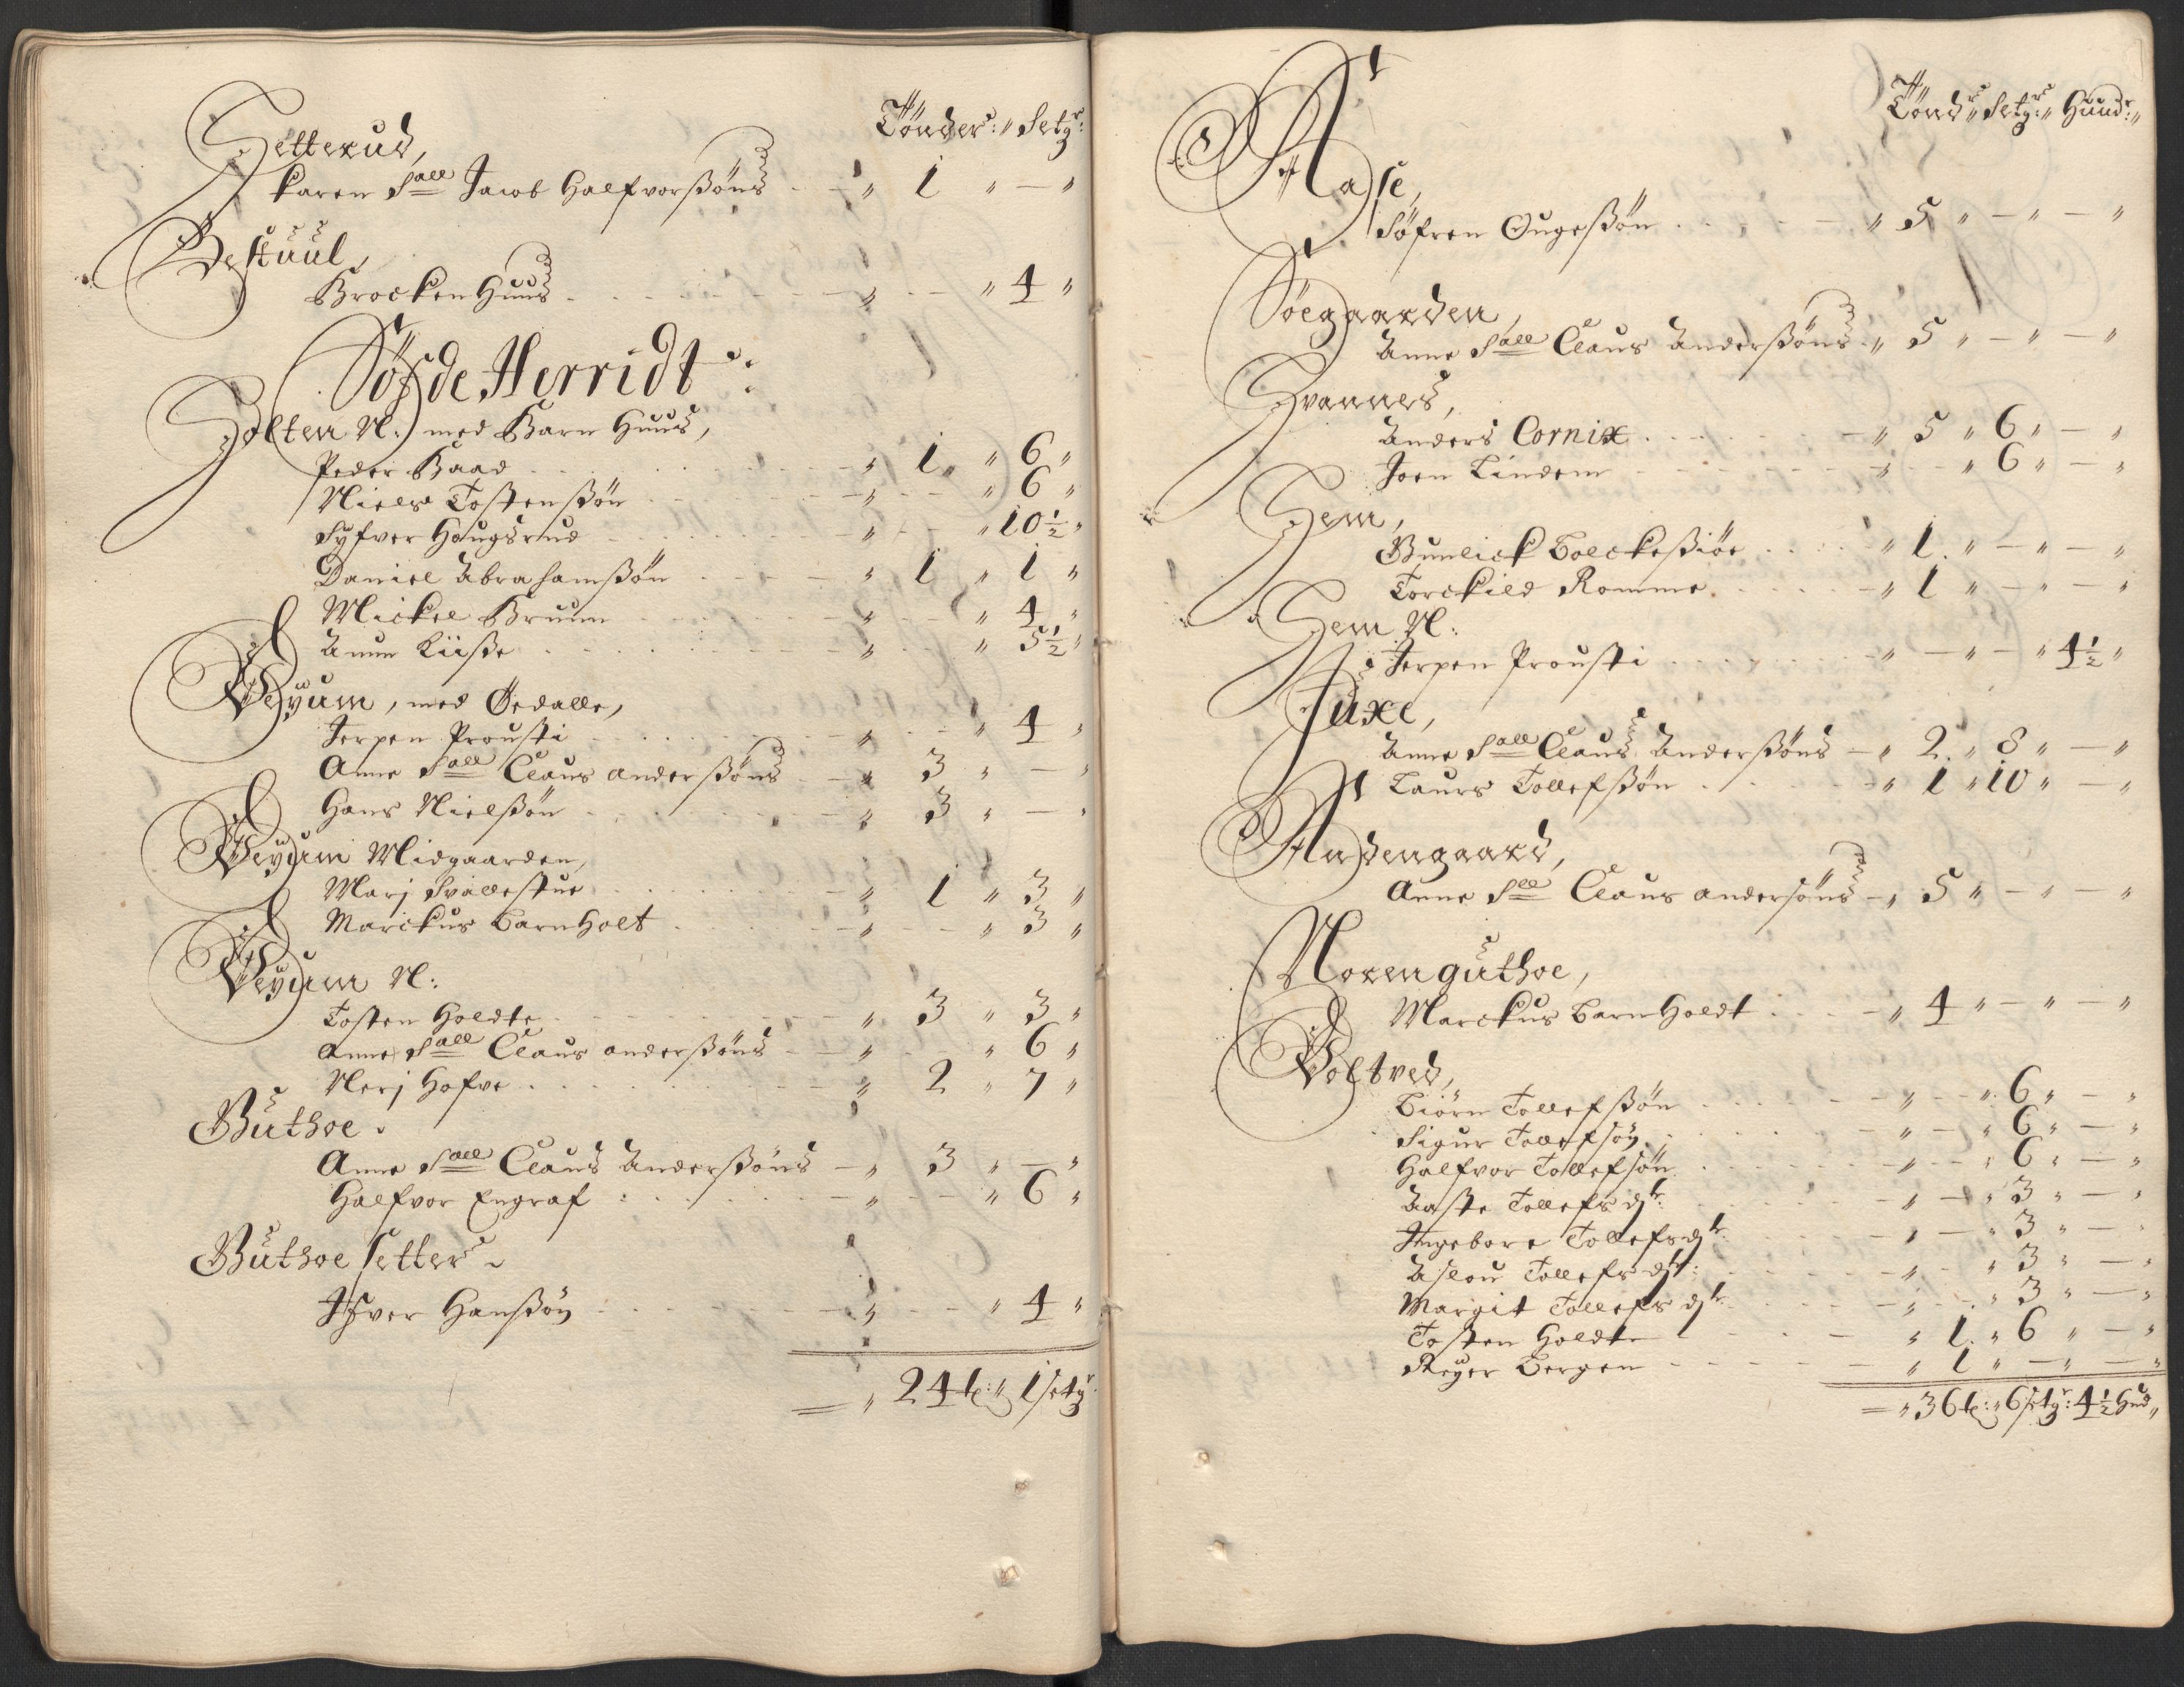 Tönder: " Setg:
Setterud,
Karen Sall Jacob Halfvorßöns - " 1 " - "
Bestuul,
Brocken Huus - " - " 4 "
Söfde Herridt:
Holten N: med Barn Huus,
Peder Baad - " 1 " 6 "
Niels Tostenßön - " - " 6 "
Syfver Haugsrud - " - " 10½ "
Daniel Abrahamßön - " 1 " 1 "
Mickel Bruun - " - " 4 "
Anun Liiße - " - " 5½ "
Weyum, med Ødalle,
Jerpen Prousti - " - " 4 "
Anne Sall Claus anderßöns - " 3 " - "
Hans Nielßön - " 3 " - "
Weyum Midgaarden,
Marj Svallestue - " 1 " 3 "
Marckus Barnholt - " - " 3 "
Weyum N:
Tosten Holdte - " 3 " 3 "
Anne Sall Claus anderßöns - " - " 6 "
Nerj Hofve - " 2 " 7 "
Guthoe.
Anne Sall Claus Anderßöns - " 3 " - "
Halfvor Engraf - " - " 6 "
Guthoe Setter
Ifver Hanßön - " - " 4 "
" 24 tr: " 1 setgr
Tönd: " Setg: " Hund: "
Aase,
Söfren Ougeßön - " 5 " - " - "
Söegaarden,
Anne Sall Claus Anderßöns - " 5 " - " - "
Svannes,
Anders Cornix - " 5 " 6 " - "
Joen Lindem - " - " 6 " - "
Hem,
Gunlick Bolckeßiöe - " 1 " - " - "
Torckild Romme - " 1 " - " - "
Hem N:
Jerpen Prousti - " - " - " 4½ "
Juxe,
Anne Sall Claus Anderßöns - " 2 " 8 " - "
Laurs Tollefßön - " 1 " 10 " - "
Andengaard,
Anne Sll Claus andersöns - " 5 " - " - "
Norenguthoe,
Marckus Barnholdt - " 4 " - " - "
Woltved,
Biörn Tollefßön - " - " 6 " - "
Sigur Tollefsön - " - " 6 " - "
Halfvor Tollefsön - " - " 6 " - "
Aaste Tollefs dtr: - " - " 3 " - "
Ingebore Tollefs dtr: - " - " 3 " - "
Aslou Tollefs dtr: - " - " 3 " - "
Margit Tollefs dtr: - " - " 3 " - "
Tosten Holdte - " 1 " 6 " - "
Reyer Bergen - " 1 " - " - "
" 36 tr: " 6 setgr: 4½ Hud "